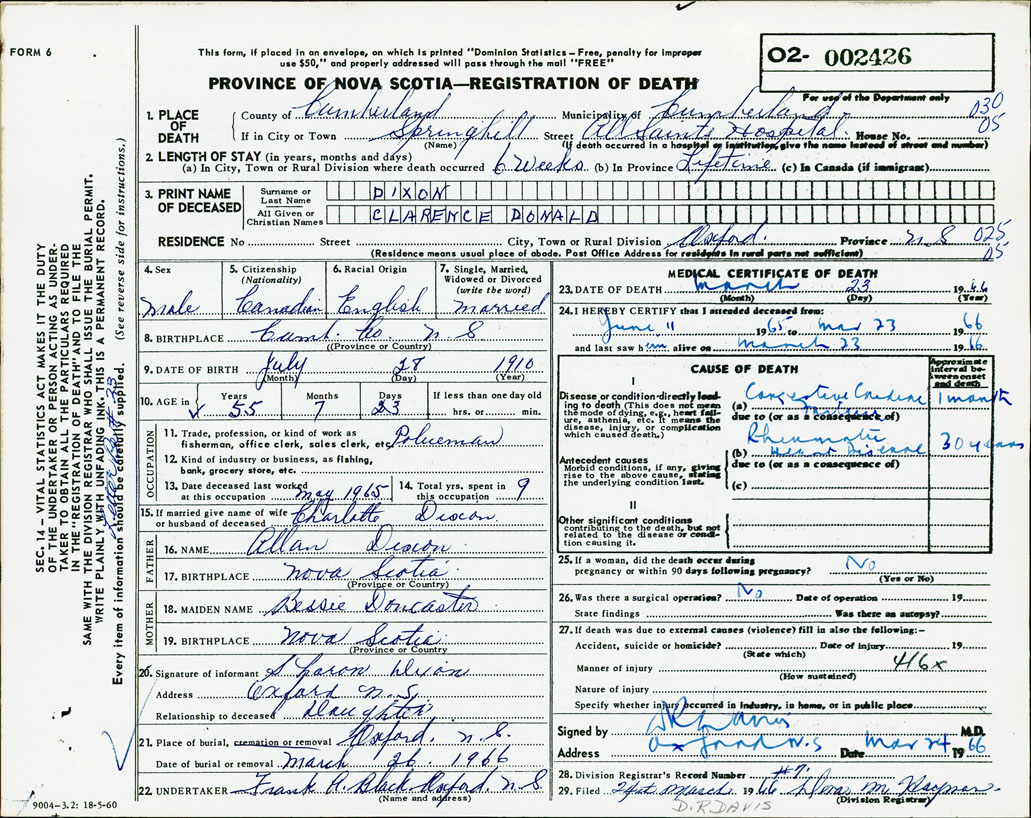 FORM 6
This form, if placed in an envelope, on which is printed "Dominion Statistics – Free, penalty for improper
use $50," and properly addressed will pass through the mail "FREE"
PROVINCE OF NOVA SCOTIA—REGISTRATION OF DEATH
O2- 002426
For use of the Department only
030
05
1. PLACE OF DEATH
County of Cumberland Municipality of Cumberland
If in City or Town Springhill Street All Saints Hospital House No.
(Name) (If death occurred in a hospital or institution, give the name instead of street and number)
2. LENGTH OF STAY (in years, months and days)
(a) In City, Town or Rural Division where death occurred 6 Weeks (b) In Province Lifetime (c) In Canada (if immigrant)
3. PRINT NAME OF DECEASED
Surname or Last Name DIXON
All Given or Christian Names CLARENCE DONALD
RESIDENCE No Street City, Town or Rural Division Oxford. Province N S
025
05
(Residence means usual place of abode. Post Office Address for residents in rural parts not sufficient)
4. Sex Male
5. Citizenship (Nationality) Canadian
6. Racial Origin English
7. Single, Married, Widowed or Divorced (write the word) Married
8. BIRTHPLACE Cumb. Co. N S
(Province or Country)
9. DATE OF BIRTH July 28 1910
(Month) (Day) (Year)
10. AGE in Years 55 Months 7 Days 23 If less than one day old hrs. or min.
OCCUPATION
11. Trade, profession, or kind of work as
fisherman, office clerk, sales clerk, etc. Policeman
12. Kind of industry or business, as fishing,
bank, grocery store, etc.
13. Date deceased last worked at this occupation May 1965
14. Total yrs. spent in this occupation 9
15. If married give name of wife or husband of deceased Charlotte Dixon.
FATHER
16. NAME Allan Dixon
17. BIRTHPLACE Nova Scotia
(Province or Country)
MOTHER
18. MAIDEN NAME Bessie Doncaster
19. BIRTHPLACE Nova Scotia
(Province or Country
20. Signature of informant Sharon Dixon
Address Oxford N.S.
Relationship to deceased Daughter
21. Place of burial, cremation or removal Oxford, N.S.
Date of burial or removal March 26 1966
22. UNDERTAKER Frank A. Black Oxford, N.S.
(Name and address)
9004-3.2: 18-5-60
MEDICAL CERTIFICATE OF DEATH
23. DATE OF DEATH March 23 1966
(Month) (Day) (Year)
24. I HEREBY CERTIFY that I attended deceased from:
June 11 1965 to Mar 23 1966
and last saw him alive on March 23 1966
CAUSE OF DEATH
Approximate interval between onset and death
I
Disease or condition directly leading to death (This does not mean the mode of dying, e.g., heart failure, asthenia, etc. It means the disease, injury, or complication which caused death.)
(a) Congestive Cardiac Failure 1 month
due to (or as a consequence of)
Antecedent causes
Morbid conditions, if any, giving rise to the above cause, stating the underlying condition last.
(b) Rheumatic Heart Disease 30 years
due to (or as a consequence of)
(c)
II
Other significant conditions
contributing to the death, but not related to the disease or condition causing it.
25. If a woman, did the death occur during
pregnancy or within 90 days following pregnancy? No
(Yes or No)
26. Was there a surgical operation? No Date of operation 19
State findings Was there an autopsy?
27. If death was due to external causes (violence) fill in also the following:–
Accident, suicide or homicide? Date of injury 19
(State which)
Manner of injury 416x
(How sustained)
Nature of injury
Specify whether injury occurred in industry, in home, or in public place
Signed by D R Davis M.D.
Address Oxford N.S Date Mar 24 1966
28. Division Registrar's Record Number #7.
29. Filed 24th March 1966
(Division Registrar)
D.R. DAVIS
SEC. 14 – VITAL STATISTICS ACT MAKES IT THE DUTY
OF THE UNDERTAKER OR PERSON ACTING AS UNDER-
TAKER TO OBTAIN ALL THE PARTICULARS REQUIRED
IN THE "REGISTRATION OF DEATH" AND TO FILE THE
SAME WITH THE DIVISION REGISTRAR WHO SHALL ISSUE THE BURIAL PERMIT.
WRITE PLAINLY WITH UNFADING INK. THIS IS A PERMANENT RECORD.
Every item of information should be carefully supplied. (See reverse side for instructions.)